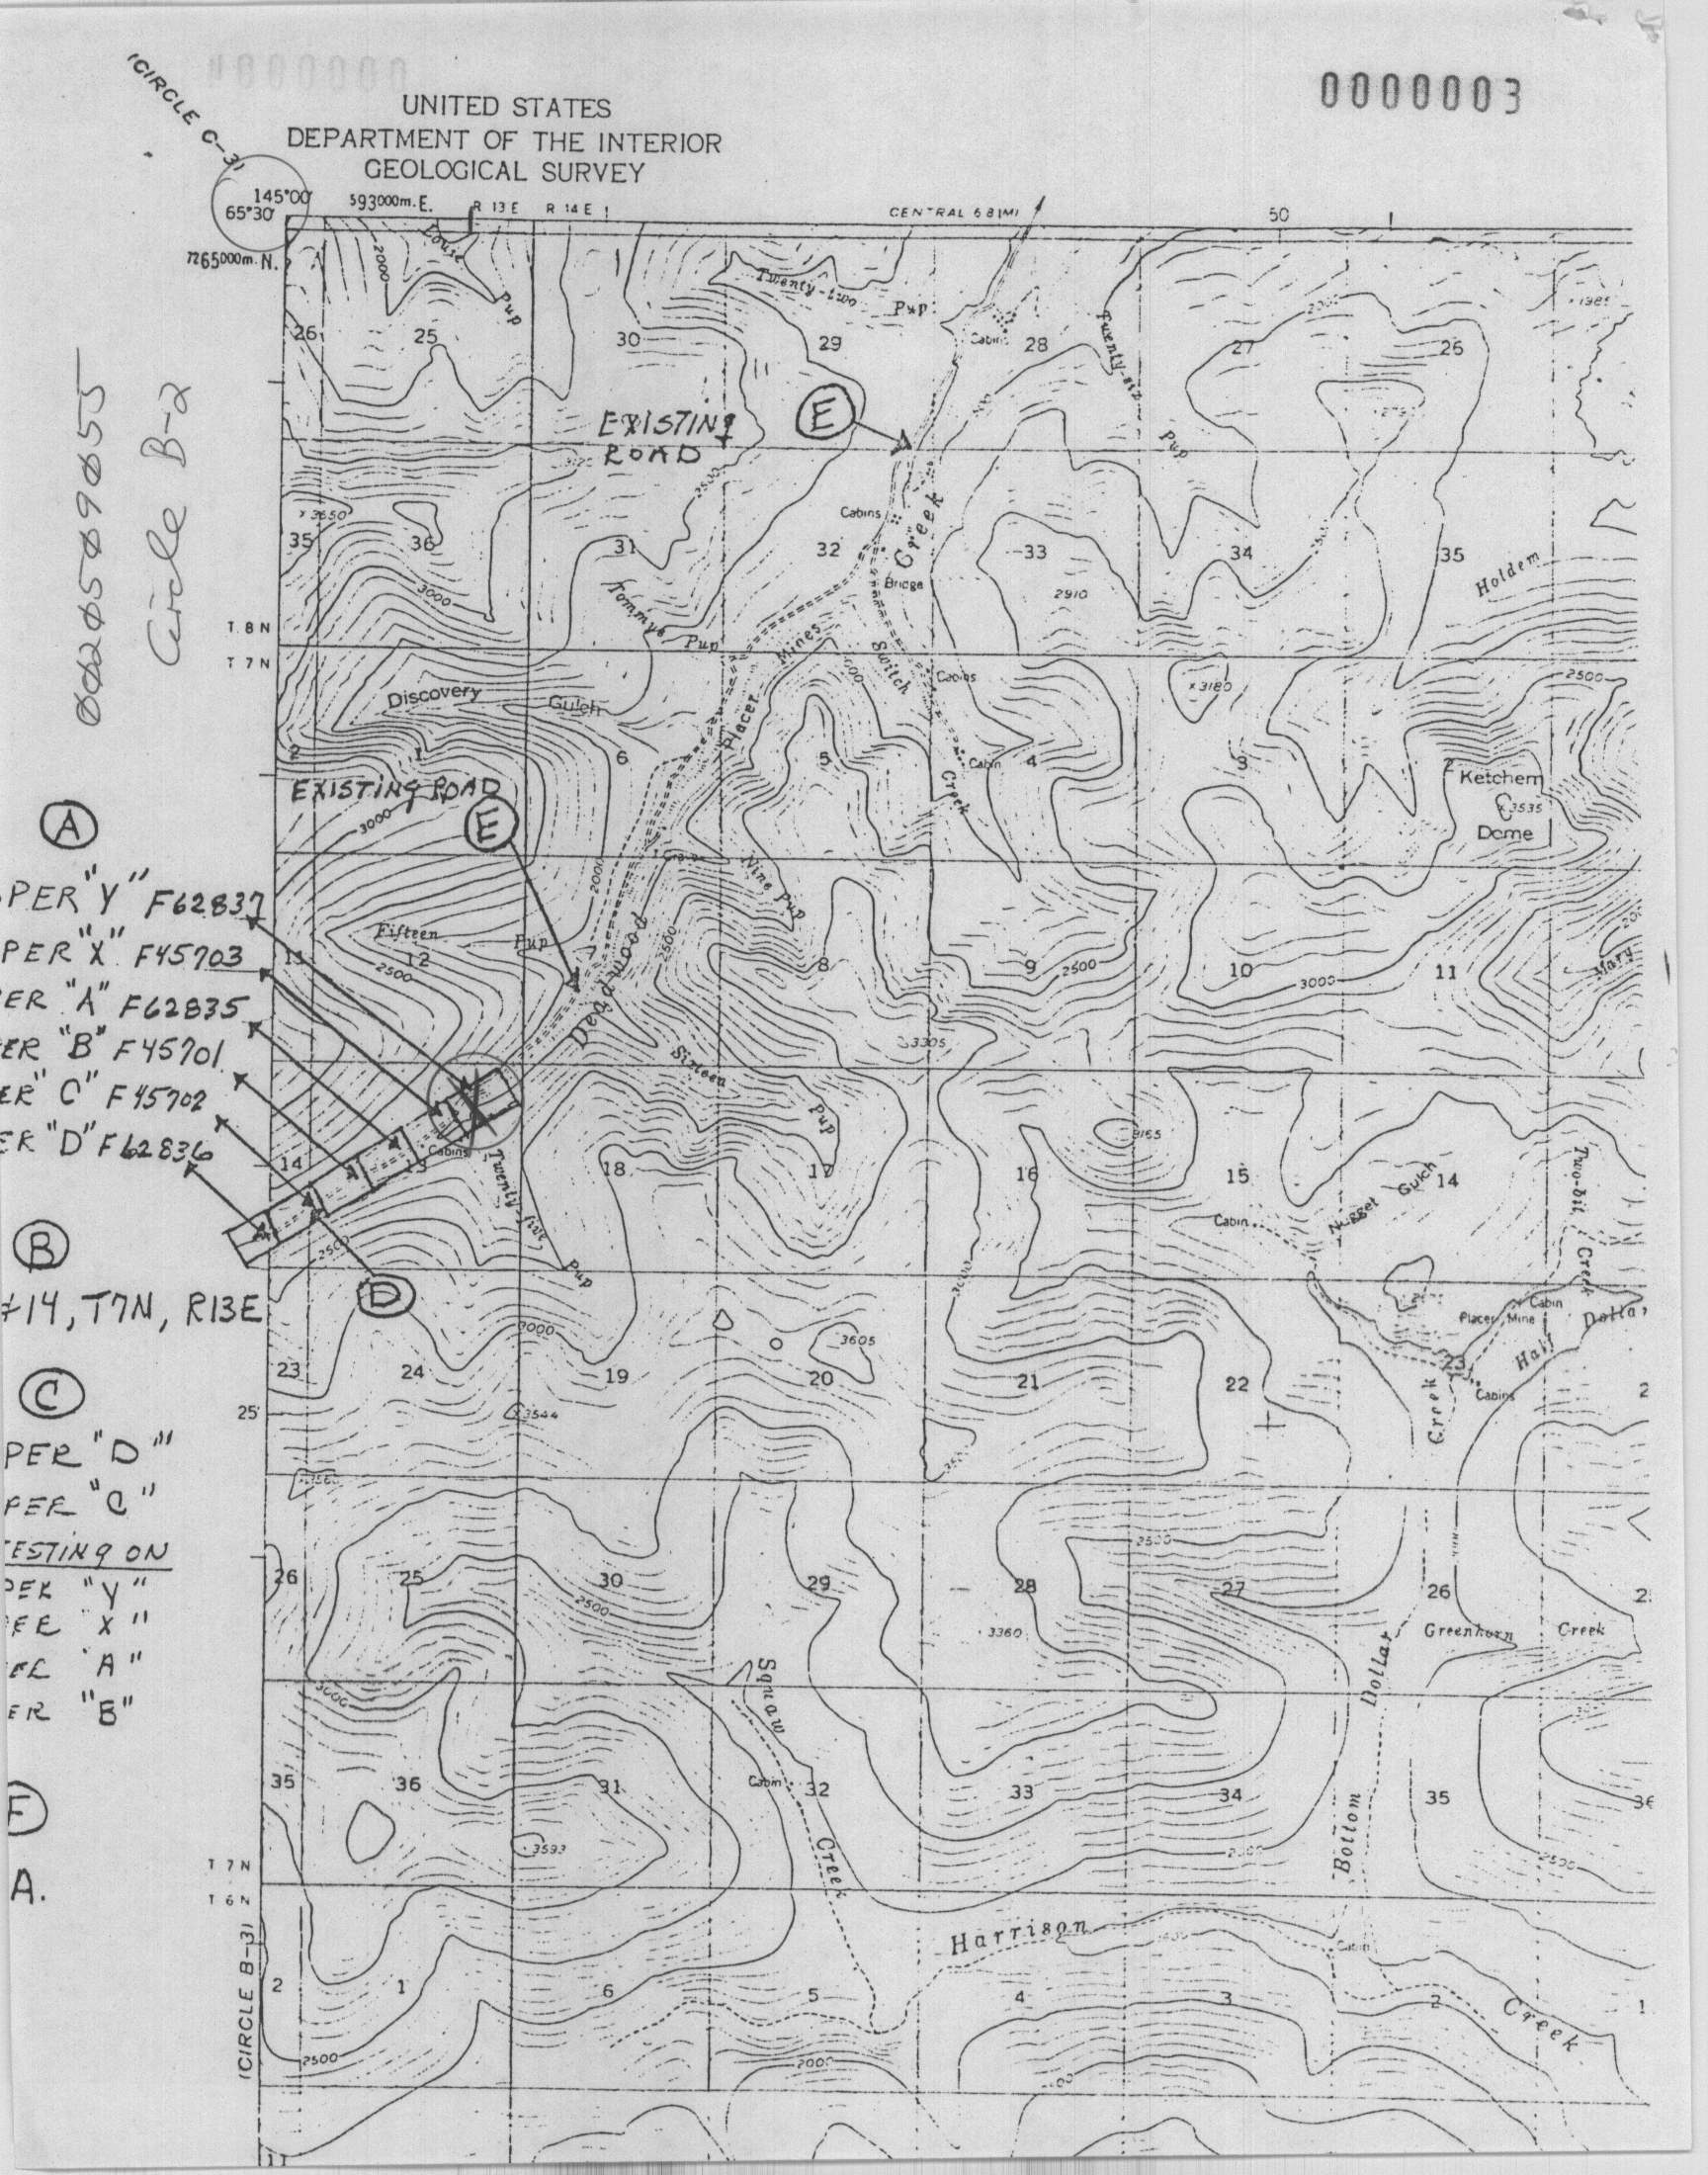 0000003
(CIRCLE C-3)
UNITED STATES
DEPARTMENT OF THE INTERIOR
GEOLOGICAL SURVEY
145°00'
65°30'
593000m.E.
R 13 E R 14 E
CENTRAL 6.8 MI
50
7265000m.N.
Louie Pup
2000
Twenty-two Pup
Cabin
Twenty-six Pup
26 25 30 29 28 27 26
EXISTING
ROAD
E
00205090055
Circle B-2
2500
x 3650
Cabins
Creek
35 36 31 32 33 34 35
Bridge
2910
Holdem
3000
Tommys Pup
T 8 N
T 7 N
Mines
Switch
Cabins
x 3180
2500
Discovery Gulch
Placer
2 1 6 5 4 3 2
Cabin
Creek
Ketchem
x 3535
Dome
EXISTING ROAD
3000
E
A
PER "Y" F62837
PER "X" F45703
ER "A" F62835
ER "B" F45701
ER "C" F45702
ER "D" F62836
2000
Nine Pup
Fifteen Pup
Deadwood
2500
11 12 8 9 10 11
2500
2500
3000
Mary
3305
Sixteen Pup
3155
Cabins
14 13 18 17 16 15 14
Twenty-five Pup
Cabin
Nugget Gulch
Two-bit Creek
2500
3000
D
B
#14, T7N, R13E
Cabin
Placer Mine
Half Dollar
3000
3605
23 24 19 20 21 22 23
Creek
Cabins
25'
x 3544
C
PER "D"
PER "C"
TESTING ON
PER "Y"
PER "X"
PER "A"
ER "B"
2500
26 25 30 29 28 27 26
2500
3360
Greenhorn Creek
3000
Squaw
Dollar
35 36 31 32 33 34 35 36
Cabin
Creek
Bottom
3593
2500
F
A.
T 7 N
T 6 N
Harrison
Cabin
(CIRCLE B-3)
2 1 6 5 4 3 2 1
Creek
2500
2000
11